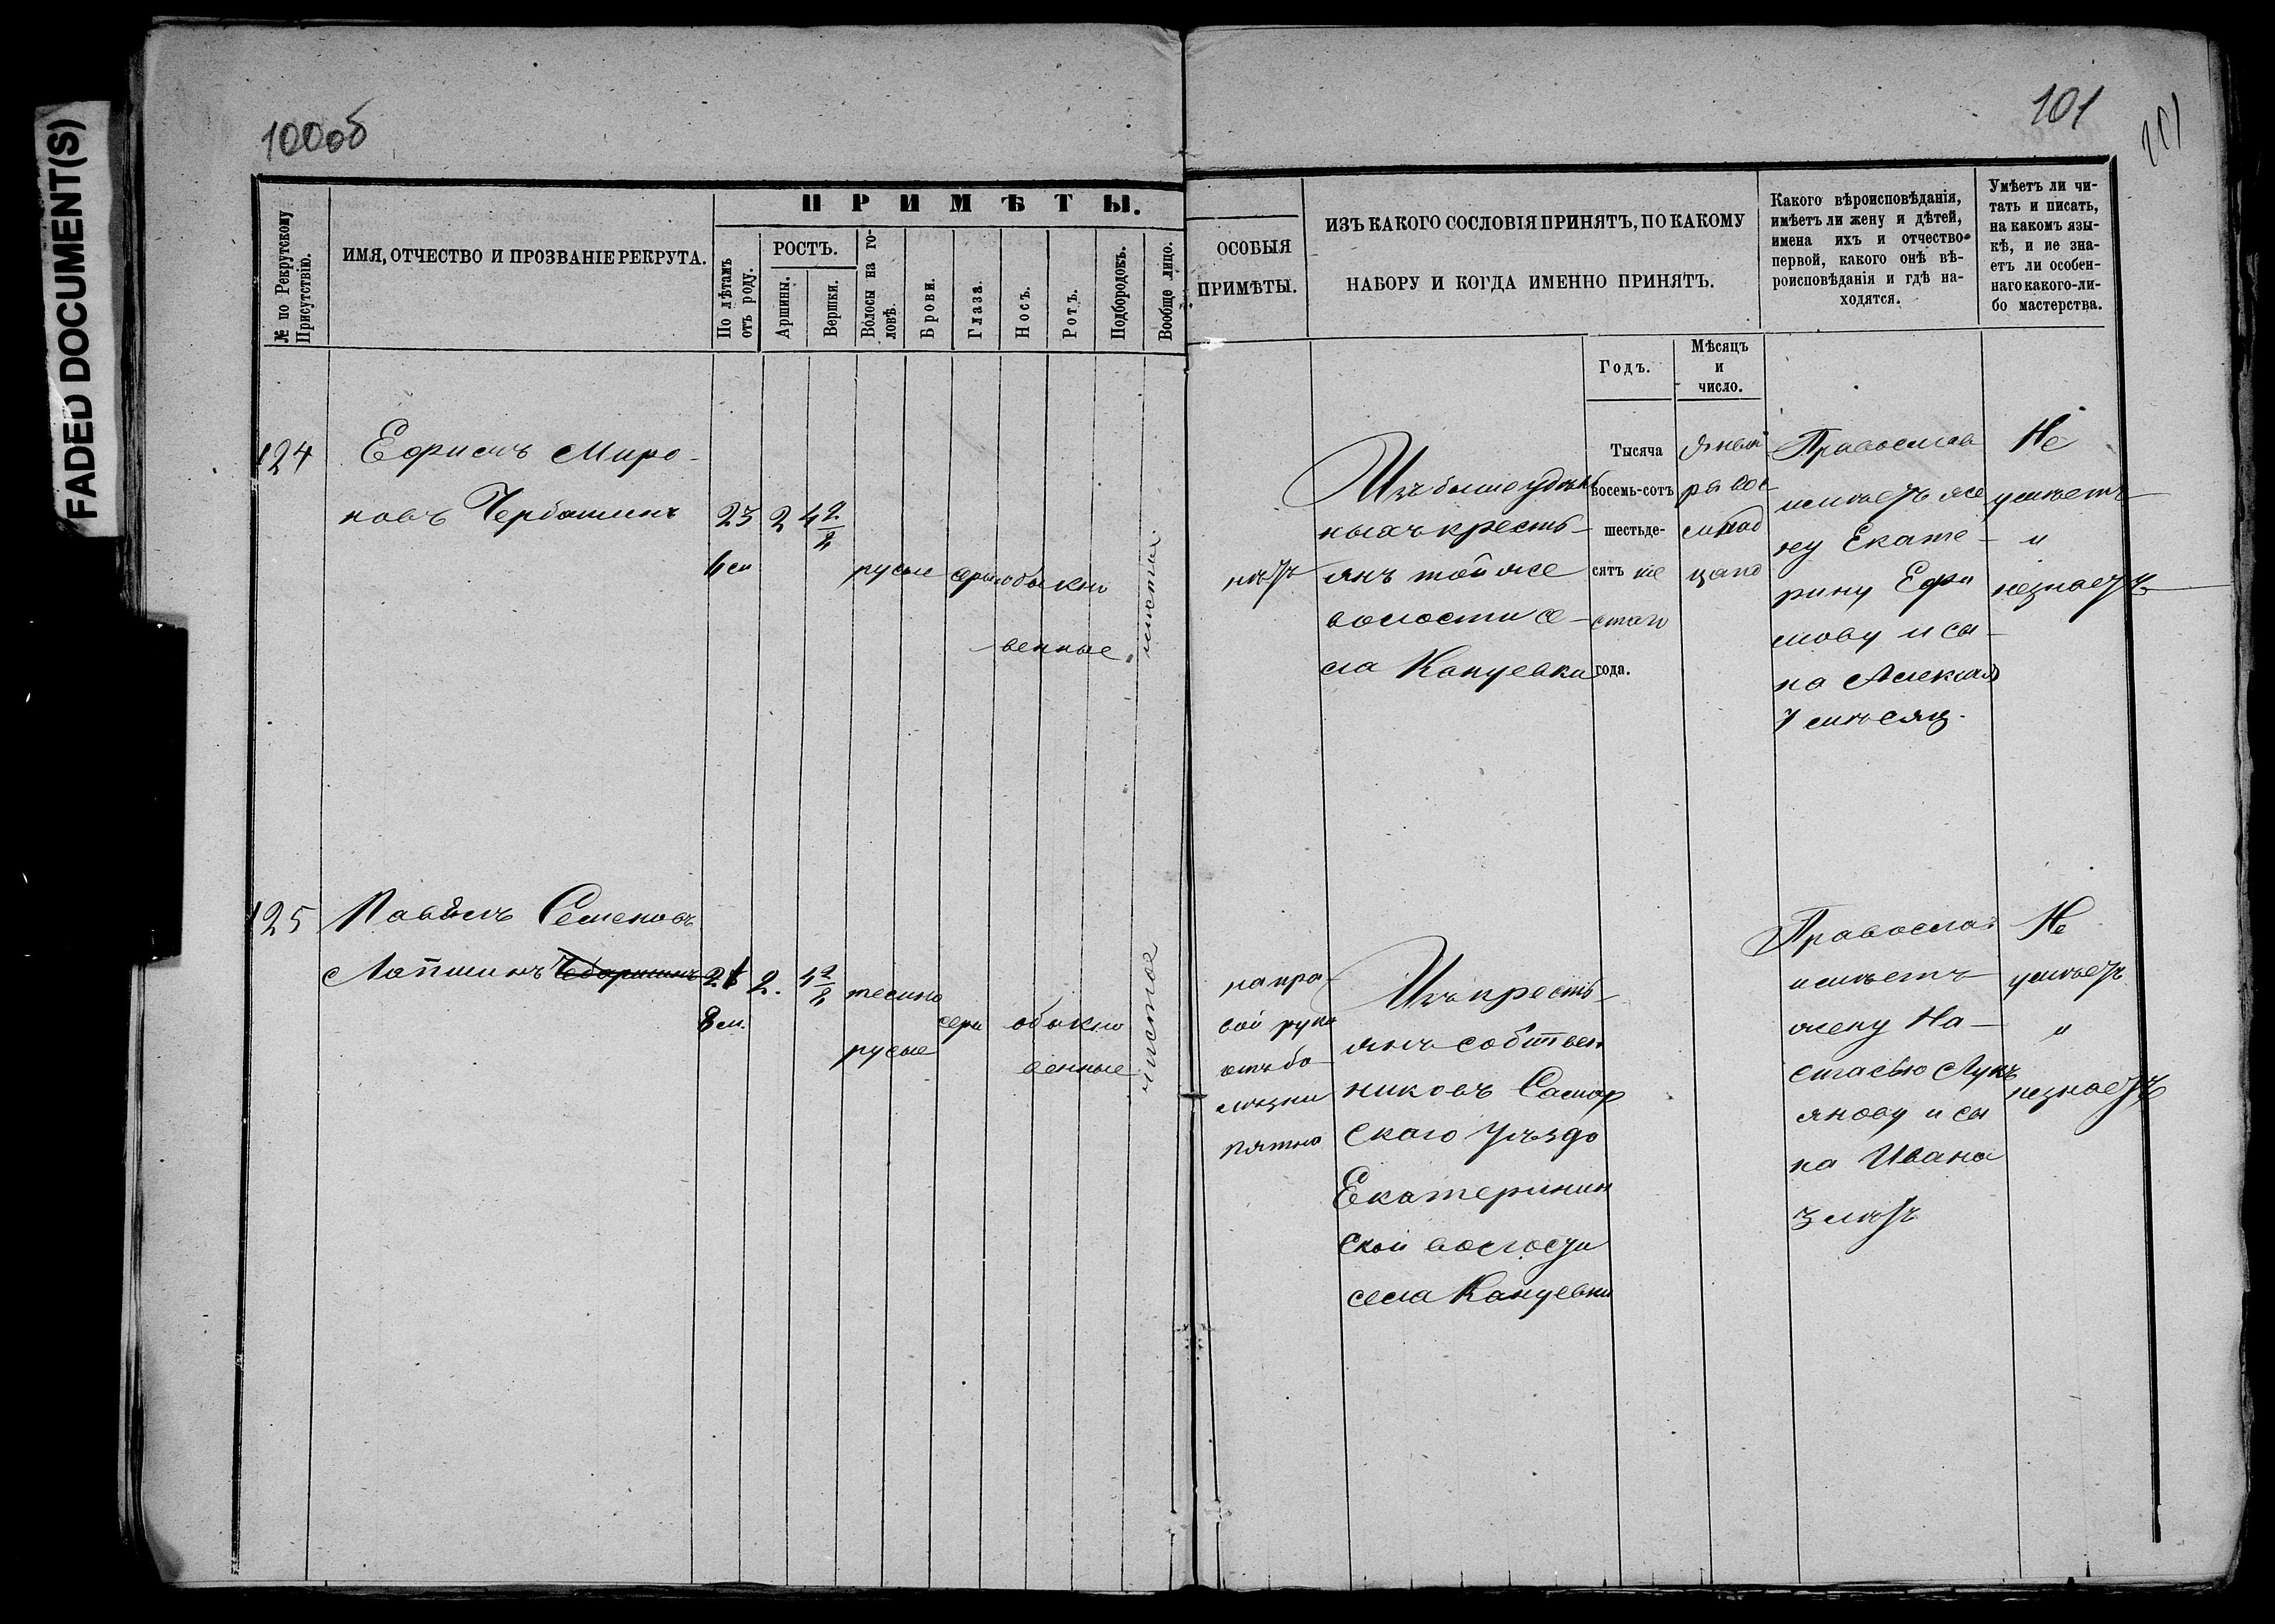 FADED DOCUMENT(S)
100об
101
101
№ по Рекрутскому
Присутствію.
ИМЯ, ОТЧЕСТВО И ПРОЗВАНІЕ РЕКРУТА.
ПРИМѢТЫ.
По лѣтамъ
отъ роду.
РОСТЪ.
Аршины.
Вершки.
Волосы на го-
ловѣ.
Брови.
Глаза.
Носъ.
Ротъ.
Подбородокъ.
Вообще лицо.
ОСОБЫЯ
ПРИМѢТЫ.
ИЗЪ КАКОГО СОСЛОВІЯ ПРИНЯТЪ, ПО КАКОМУ
НАБОРУ И КОГДА ИМЕННО ПРИНЯТЪ.
Годъ.
Мѣсяцъ
и
число.
Какого вѣроисповѣданія,
имѣетъ ли жену и дѣтей,
имена ихъ и отчество
первой, какого онѣ вѣ-
роисповѣданія и гдѣ на-
ходятся.
Умѣетъ ли чи-
тать и писать,
на какомъ язы-
кѣ, и не зна-
етъ ли особен-
наго какого-ли-
бо мастерства.
124
Ефимъ Миро-
новъ
23
2
4 2/8
русые
обыкно
венные
чистое
нѣтъ
Изъ бывш удѣль
ныхъ кресть-
янъ той же
волости се-
ла Кануевки
Тысяча
восемь-сотъ
шестьде-
сятъ ше
стаго
года.
Янва
ря вос
мнад
цато
Православ
имѣетъ же
ну Екате-
рину Ефи
мову и сы-
на Алексѣя
7 мѣсяц.
Не
умѣетъ
и
незнаетъ
125
Павелъ Семеновъ
Лапшинъ
2
4 2/8
8 м.
темно
русые
серы
обыкно
венные
чистое
на пра
вой руке
отъ бо
лѣзни
пятно
Изъ кресть-
янъ собствен
никовъ Самар
скаго уѣзда
Екатеринин
ской волости
села Кануевки
Православ
имѣетъ
жену На-
стасью Лукъ
янову и сы
на Ивана
3 лѣтъ
Не
умѣетъ
и
незнаетъ